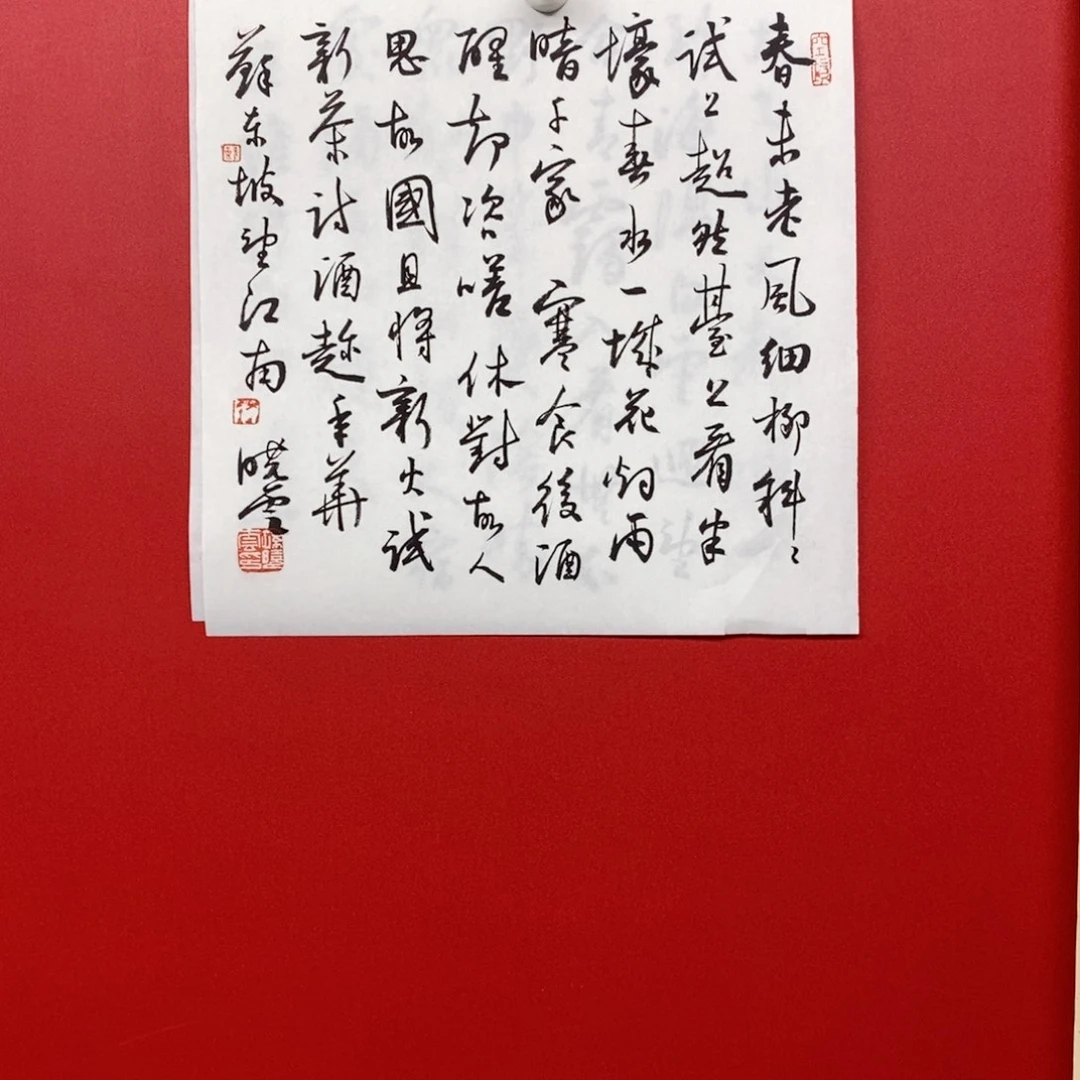 春未老風細柳斜〻
試上超然臺上看半
壕春水一城花烟雨
暗千家 寒食後酒
醒却咨嗟休對故人
思故國且将新火試
新茶詩酒趁年華
蘇东坡望江南 晓雲